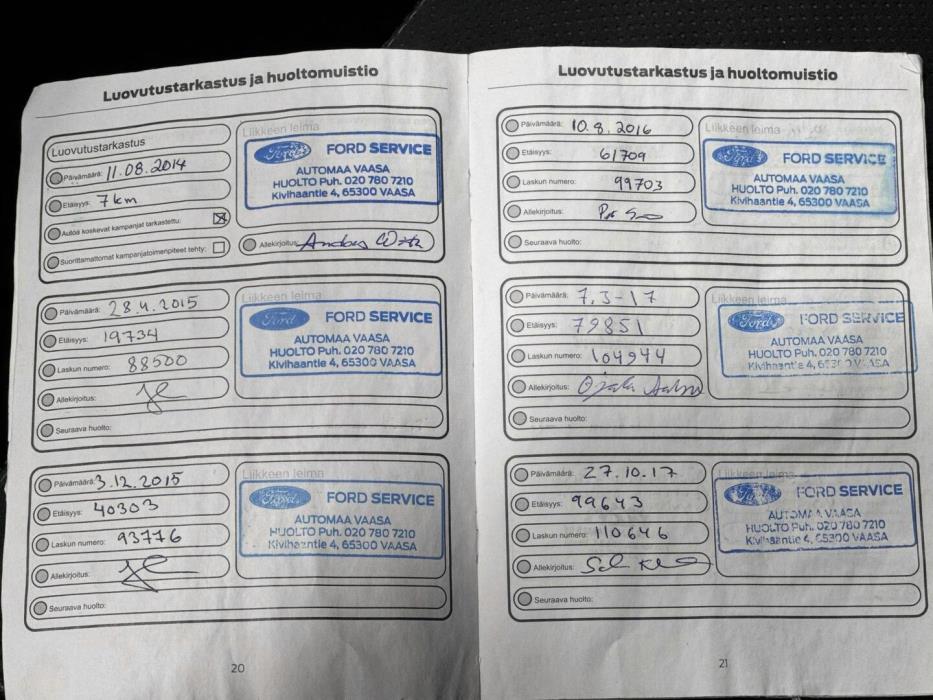 Luovutustarkastus ja huoltomuistio
Luovutustarkastus
Päivämäärä: 11.08.2014
Etäisyys: 7 km
Autoa koskevat kampanjat tarkastettu:
Suorittamattomat kampanjatoimenpiteet tehty:
Liikkeen leima
Ford FORD SERVICE
AUTOMAA VAASA
HUOLTO Puh. 020 780 7210
Kivihaantie 4, 65300 VAASA
Allekirjoitus:
Päivämäärä: 28.4.2015
Etäisyys: 19734
Laskun numero: 88500
Allekirjoitus:
Seuraava huolto:
Liikkeen leima
Ford FORD SERVICE
AUTOMAA VAASA
HUOLTO Puh. 020 780 7210
Kivihaantie 4, 65300 VAASA
Päivämäärä: 3.12.2015
Etäisyys: 40303
Laskun numero: 93776
Allekirjoitus:
Seuraava huolto:
Liikkeen leima
Ford FORD SERVICE
AUTOMAA VAASA
HUOLTO Puh. 020 780 7210
Kivihaantie 4, 65300 VAASA
20
Luovutustarkastus ja huoltomuistio
Päivämäärä: 10.8.2016
Etäisyys: 61709
Laskun numero: 99703
Allekirjoitus:
Seuraava huolto:
Liikkeen leima
Ford FORD SERVICE
AUTOMAA VAASA
HUOLTO Puh. 020 780 7210
Kivihaantie 4, 65300 VAASA
Päivämäärä: 7.3-17
Etäisyys: 79851
Laskun numero: 104944
Allekirjoitus: Ojala
Seuraava huolto:
Liikkeen leima
Ford FORD SERVICE
AUTOMAA VAASA
HUOLTO Puh. 020 780 7210
Kivihaantie 4, 65300 VAASA
Päivämäärä: 27.10.17
Etäisyys: 99643
Laskun numero: 110646
Allekirjoitus:
Seuraava huolto:
Liikkeen leima
Ford FORD SERVICE
AUTOMAA VAASA
HUOLTO Puh. 020 780 7210
Kivihaantie 4, 65300 VAASA
21